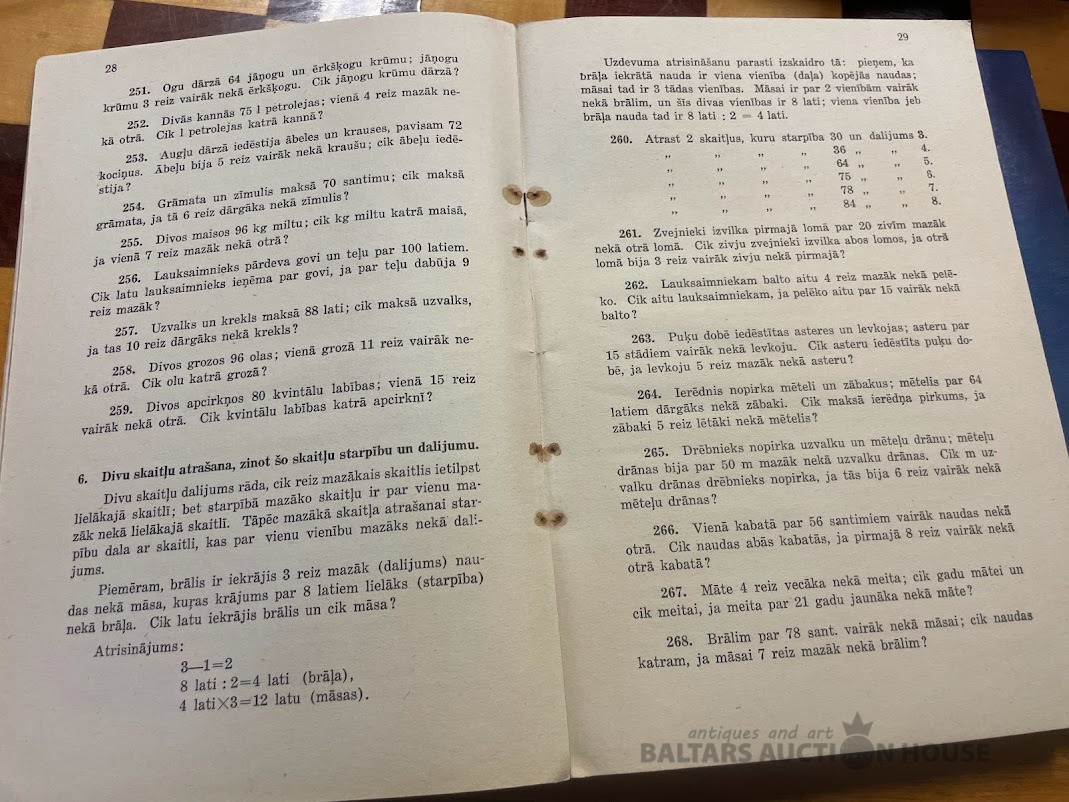 28
251. Ogu dārzā 64 jāņogu un ērkšķogu krūmu; jāņogu
krūmu 3 reiz vairāk nekā ērkšķogu. Cik jāņogu krūmu dārzā?
252. Divās kannās 75 l petrolejas; vienā 4 reiz mazāk ne-
kā otrā. Cik l petrolejas katrā kannā?
253. Augļu dārzā iedēstīja ābeles un krauses, pavisam 72
kociņus. Ābeļu bija 5 reiz vairāk nekā kraušu; cik ābeļu iedē-
stīja?
254. Grāmata un zīmulis maksā 70 santimu; cik maksā
grāmata, ja tā 6 reiz dārgāka nekā zīmulis?
255. Divos maisos 96 kg miltu; cik kg miltu katrā maisā,
ja vienā 7 reiz mazāk nekā otrā?
256. Lauksaimnieks pārdeva govi un teļu par 100 latiem.
Cik latu lauksaimnieks ieņēma par govi, ja par teļu dabūja 9
reiz mazāk?
257. Uzvalks un krekls maksā 88 lati; cik maksā uzvalks,
ja tas 10 reiz dārgāks nekā krekls?
258. Divos grozos 96 olas; vienā grozā 11 reiz vairāk ne-
kā otrā. Cik olu katrā grozā?
259. Divos apcirkņos 80 kvintālu labības; vienā 15 reiz
vairāk nekā otrā. Cik kvintālu labības katrā apcirknī?
6. Divu skaitļu atrašana, zinot šo skaitļu starpību un dalijumu.
Divu skaitļu dalijums rāda, cik reiz mazākais skaitlis ietilpst
lielākajā skaitlī; bet starpībā mazāko skaitļu ir par vienu ma-
zāk nekā lielākajā skaitlī. Tāpēc mazākā skaitļa atrašanai star-
pību dala ar skaitli, kas par vienu vienību mazāks nekā dali-
jums.
Piemēram, brālis ir iekrājis 3 reiz mazāk (dalijums) nau-
das nekā māsa, kuŗas krājums par 8 latiem lielāks (starpība)
nekā brāļa. Cik latu iekrājis brālis un cik māsa?
Atrisinājums:
3—1=2
8 lati : 2=4 lati (brāļa),
4 lati×3=12 latu (māsas).
29
Uzdevuma atrisināšanu parasti izskaidro tā: pieņem, ka
brāļa iekrātā nauda ir viena vienība (daļa) kopējās naudas;
māsai tad ir 3 tādas vienības. Māsai ir par 2 vienībām vairāk
nekā brālim, un šīs divas vienības ir 8 lati; viena vienība jeb
brāļa nauda tad ir 8 lati : 2 = 4 lati.
260. Atrast 2 skaitļus, kuru starpība 30 un dalijums 3.
„ „ „ „ 36 „ „ 4.
„ „ „ „ 64 „ „ 5.
„ „ „ „ 75 „ „ 6.
„ „ „ „ 78 „ „ 7.
„ „ „ „ 84 „ „ 8.
261. Zvejnieki izvilka pirmajā lomā par 20 zivīm mazāk
nekā otrā lomā. Cik zivju zvejnieki izvilka abos lomos, ja otrā
lomā bija 3 reiz vairāk zivju nekā pirmajā?
262. Lauksaimniekam balto aitu 4 reiz mazāk nekā pelē-
ko. Cik aitu lauksaimniekam, ja pelēko aitu par 15 vairāk nekā
balto?
263. Puķu dobē iedēstītas asteres un levkojas; asteru par
15 stādiem vairāk nekā levkoju. Cik asteru iedēstīts puķu do-
bē, ja levkoju 5 reiz mazāk nekā asteru?
264. Ierēdnis nopirka mēteli un zābakus; mētelis par 64
latiem dārgāks nekā zābaki. Cik maksā ierēdņa pirkums, ja
zābaki 5 reiz lētāki nekā mētelis?
265. Drēbnieks nopirka uzvalku un mēteļu drānu; mēteļu
drānas bija par 50 m mazāk nekā uzvalku drānas. Cik m uz-
valku drānas drēbnieks nopirka, ja tās bija 6 reiz vairāk nekā
mēteļu drānas?
266. Vienā kabatā par 56 santimiem vairāk naudas nekā
otrā. Cik naudas abās kabatās, ja pirmajā 8 reiz vairāk nekā
otrā kabatā?
267. Māte 4 reiz vecāka nekā meita; cik gadu mātei un
cik meitai, ja meita par 21 gadu jaunāka nekā māte?
268. Brālim par 78 sant. vairāk nekā māsai; cik naudas
katram, ja māsai 7 reiz mazāk nekā brālim?
antiques and art
BALTARS AUCTION HOUSE